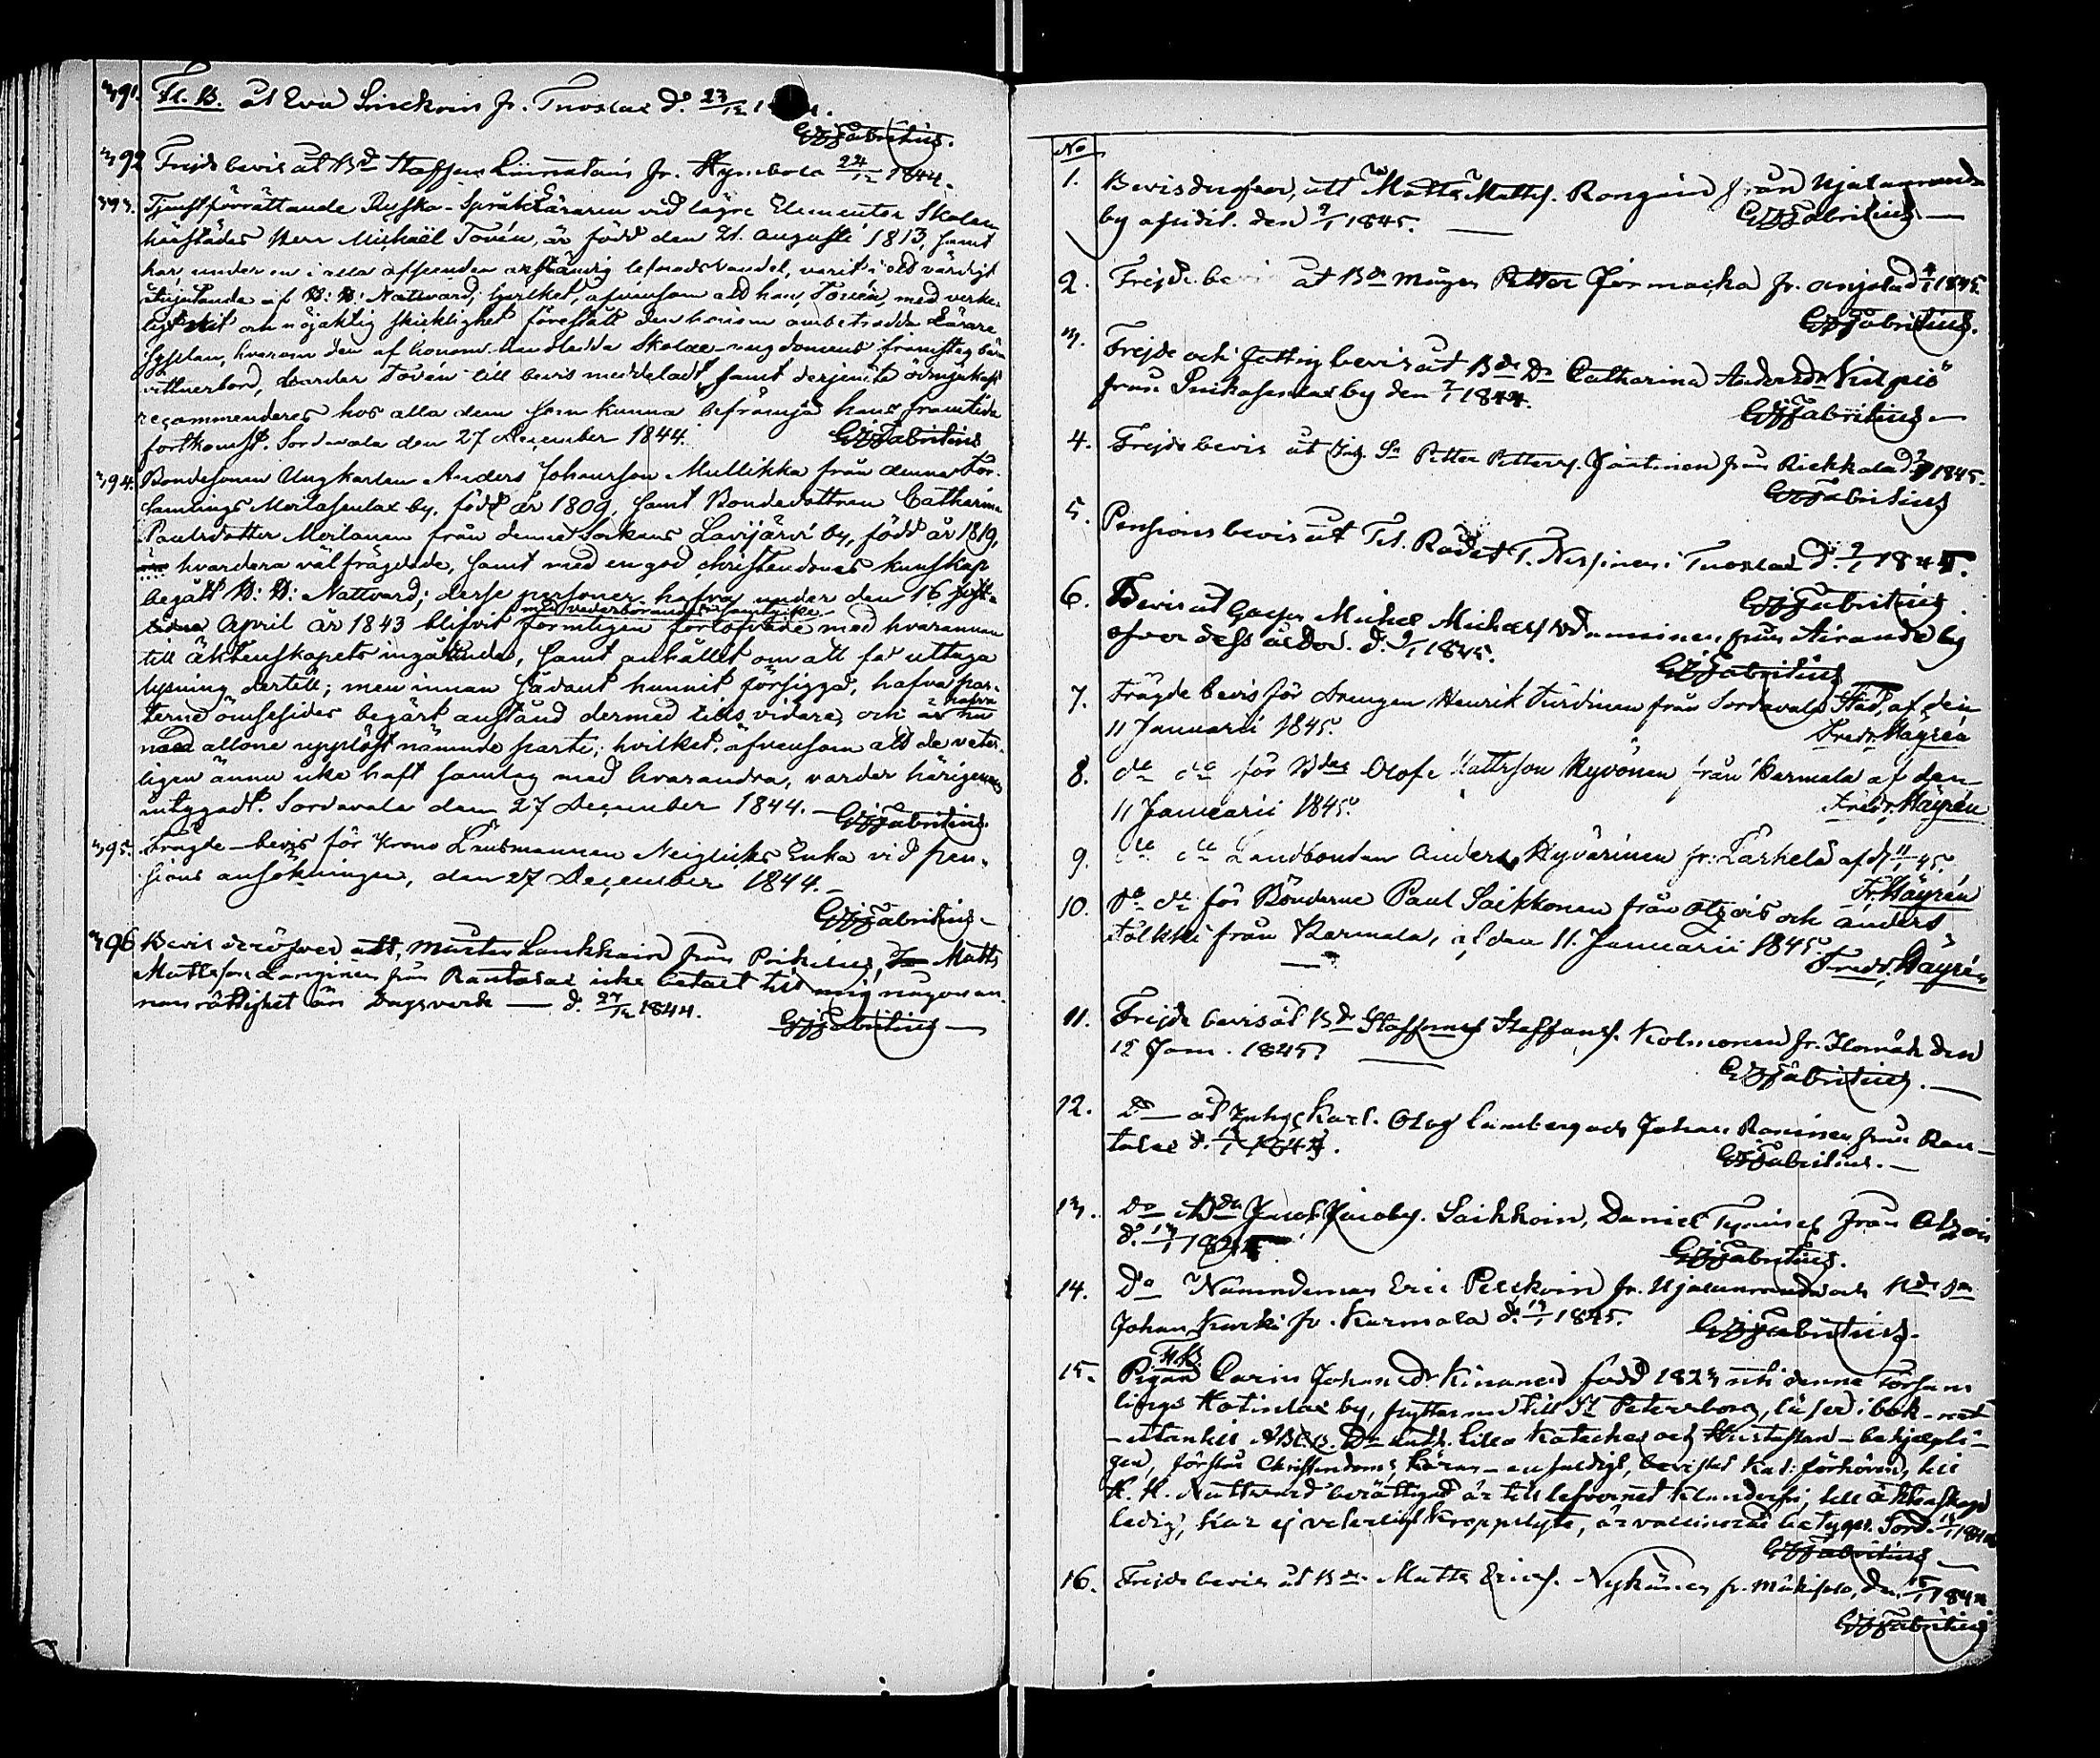 391. Fl. B. åt Eva Sinckoin fr. Tuoslax d. 23/12
GJFabritius.
392 Frejdebevis åt Bd Staffan Liimatain fr. Hymbola 24/12 1844.
393. Tjenstförrättande Ryska-Språkläraren vid lägre Elementar Skolan
härstädes Herr Michaël Tovén, är född den 21. Augusti 1813, samt
har under en i alla afseenden anständig lefnadsvandel, varit i ett värdigt
åtnjutande af H: H: Nattvard; hvilket, äfvensom att han, Tovén, med verke-
lig nit och nöjaktig skicklighet förestått den honom ombetrodda Lärare
Sysslan, hvarom den af honom handledda Skolae-ungdomens framsteg bära
vittnesbörd, warder Tovén till bevis meddeladt, samt derjemte ödmjukast
recommenderes hos alla dem som kunna befrämja hans framtida
fortkomst. Sordavala den 27 December 1844. GJFabritius
394. Bondesonen Ungkarlen Anders Johansson Mullikka från denna För-
samlings Meilasenlax by, född år 1809, samt Bondedottren Catharina
Paulsdotter Meilanen från denna Sockens Lavijärvi by, född år 1819,
hvardera välfrägdade, samt med en god christendoms kunskap
begått H: H: Nattvard; desse personer hafva under den 16
med vederbörandes samtycke
April år 1843 blifvit förmligen förlofvade med hvarannan
till äktenskapets ingående, samt anhållit om att få uttaga
lysning dertill; men innan sådant hunnit försiggå, hafva par-
hafva
terne ömsesides begärt anstånd dermed tills vidare, och nu
allone upplöst nämnde parti; hvilket, äfvensom att de veter-
ligen ännu icke haft samlag med hvarandra, varder härigenom
intygadt. Sordavala den 27 December 1844. — GJFabritius.
395. Frägde-bevis för Krono Länsmannen Neiglicks Enka vid pen-
sions ansökningen, den 27 December 1844. —
GJFabritius —
396 Bevis deröfver att, Mårten Laukkain från Poikelus, Matts
Mattsson Longinen från Rantasal icke betalt till mig någon an-
nan rättighet än Dagsverk — d. 27/12 1844.
GJFabritius —
No
1. Bevis derofver, att Matts Mattss. Rongain från Hjalanranda
by afsidit. den 2/1 1845. — GJFabritius —
2. Frejdebevis åt Bd mågen Petter Jormacka fr. Anjola d. 4/1 1845.
GJFabritius.
3. Frejde och fattigbevis åt Bde Dr Catharina Andersdr Kilpiö
från Puikasenlax by den 7/1 1844.
GJFabritius —
4. Frejdebevis åt Inh. Sn Petter Petters. Jäntinen från Riekkala d. 1845.
GJFabritius
5. Pensionsbevis åt Tit. Rådet T. Nessinen i Tuoslax d. 9/1 1845.
GJFabritius.
6. Bevis åt Michel Michelss från Airanda by
öfver dess ålder. d. 9/1 1845.
GJFabritius
7. Frägde bevis för drengen Henrik Turdinen från Sordavala Stad, af den
11 Januarii 1845. Fredr. Häyrén
8. do do för Bden Olof Mattsson Hyvönen från Karmala af den
11 Januarii 1845. Fredr. Häyrén
9. do do Landbonden Anders Hyvärinen fr. Tärkelä af d. 11/1 45.
Fr. Häyrén
10. do do för Bönderne Paul Saikkonen från Otzois och Anders
Tolkki från Karmala, af den 11. Januarii 1845. Fredr. Häyrén
11. Frejdebevis åt Bd Staffans. Kolmonen fr. Ilomäk den
12 Jan. 1845. — GJFabritius. —
12. Do — åt Inhys Karl. Olof Limberg och Johan Roninen från Ran-
talax d. GJFabritius. —
13. Do Bde Jacob Jacobss. Saikkoin, Daniel från Otzois
d. 13/1 GJFabritius.
14. Do Nämndeman Eric Perckoin fr. Hjalanranda och Bde Sn
Johan Kurki fr. Karmala d. 13/1 1845. GJFabritius.
Fl.B.
15. Pigan Carin Johansdr Kinanen född 1823 uti denna Försam-
lings Hotinlax by, flyttar nu till St Petersborg, läser i bok - nöt
- utantill A.B.C.B. Dr Luth. Lilla Kateches och Hustaflan - behjelpli-
gen, förstår Christendoms Läran - enfaldigt, bevistat Kat: förhören, till
H. H. Nattvard berättigad är till lefvernet klanderfri, till äktenskap
ledig, har ej veterligt kroppslyte, är vaccinerad betygar. Sord. 15/1
GJFabritius —
16. Frejdebevis åt Bde Matts Ericss. Nykänen fr. Mäkiselo, den 15/1
GJFabritius